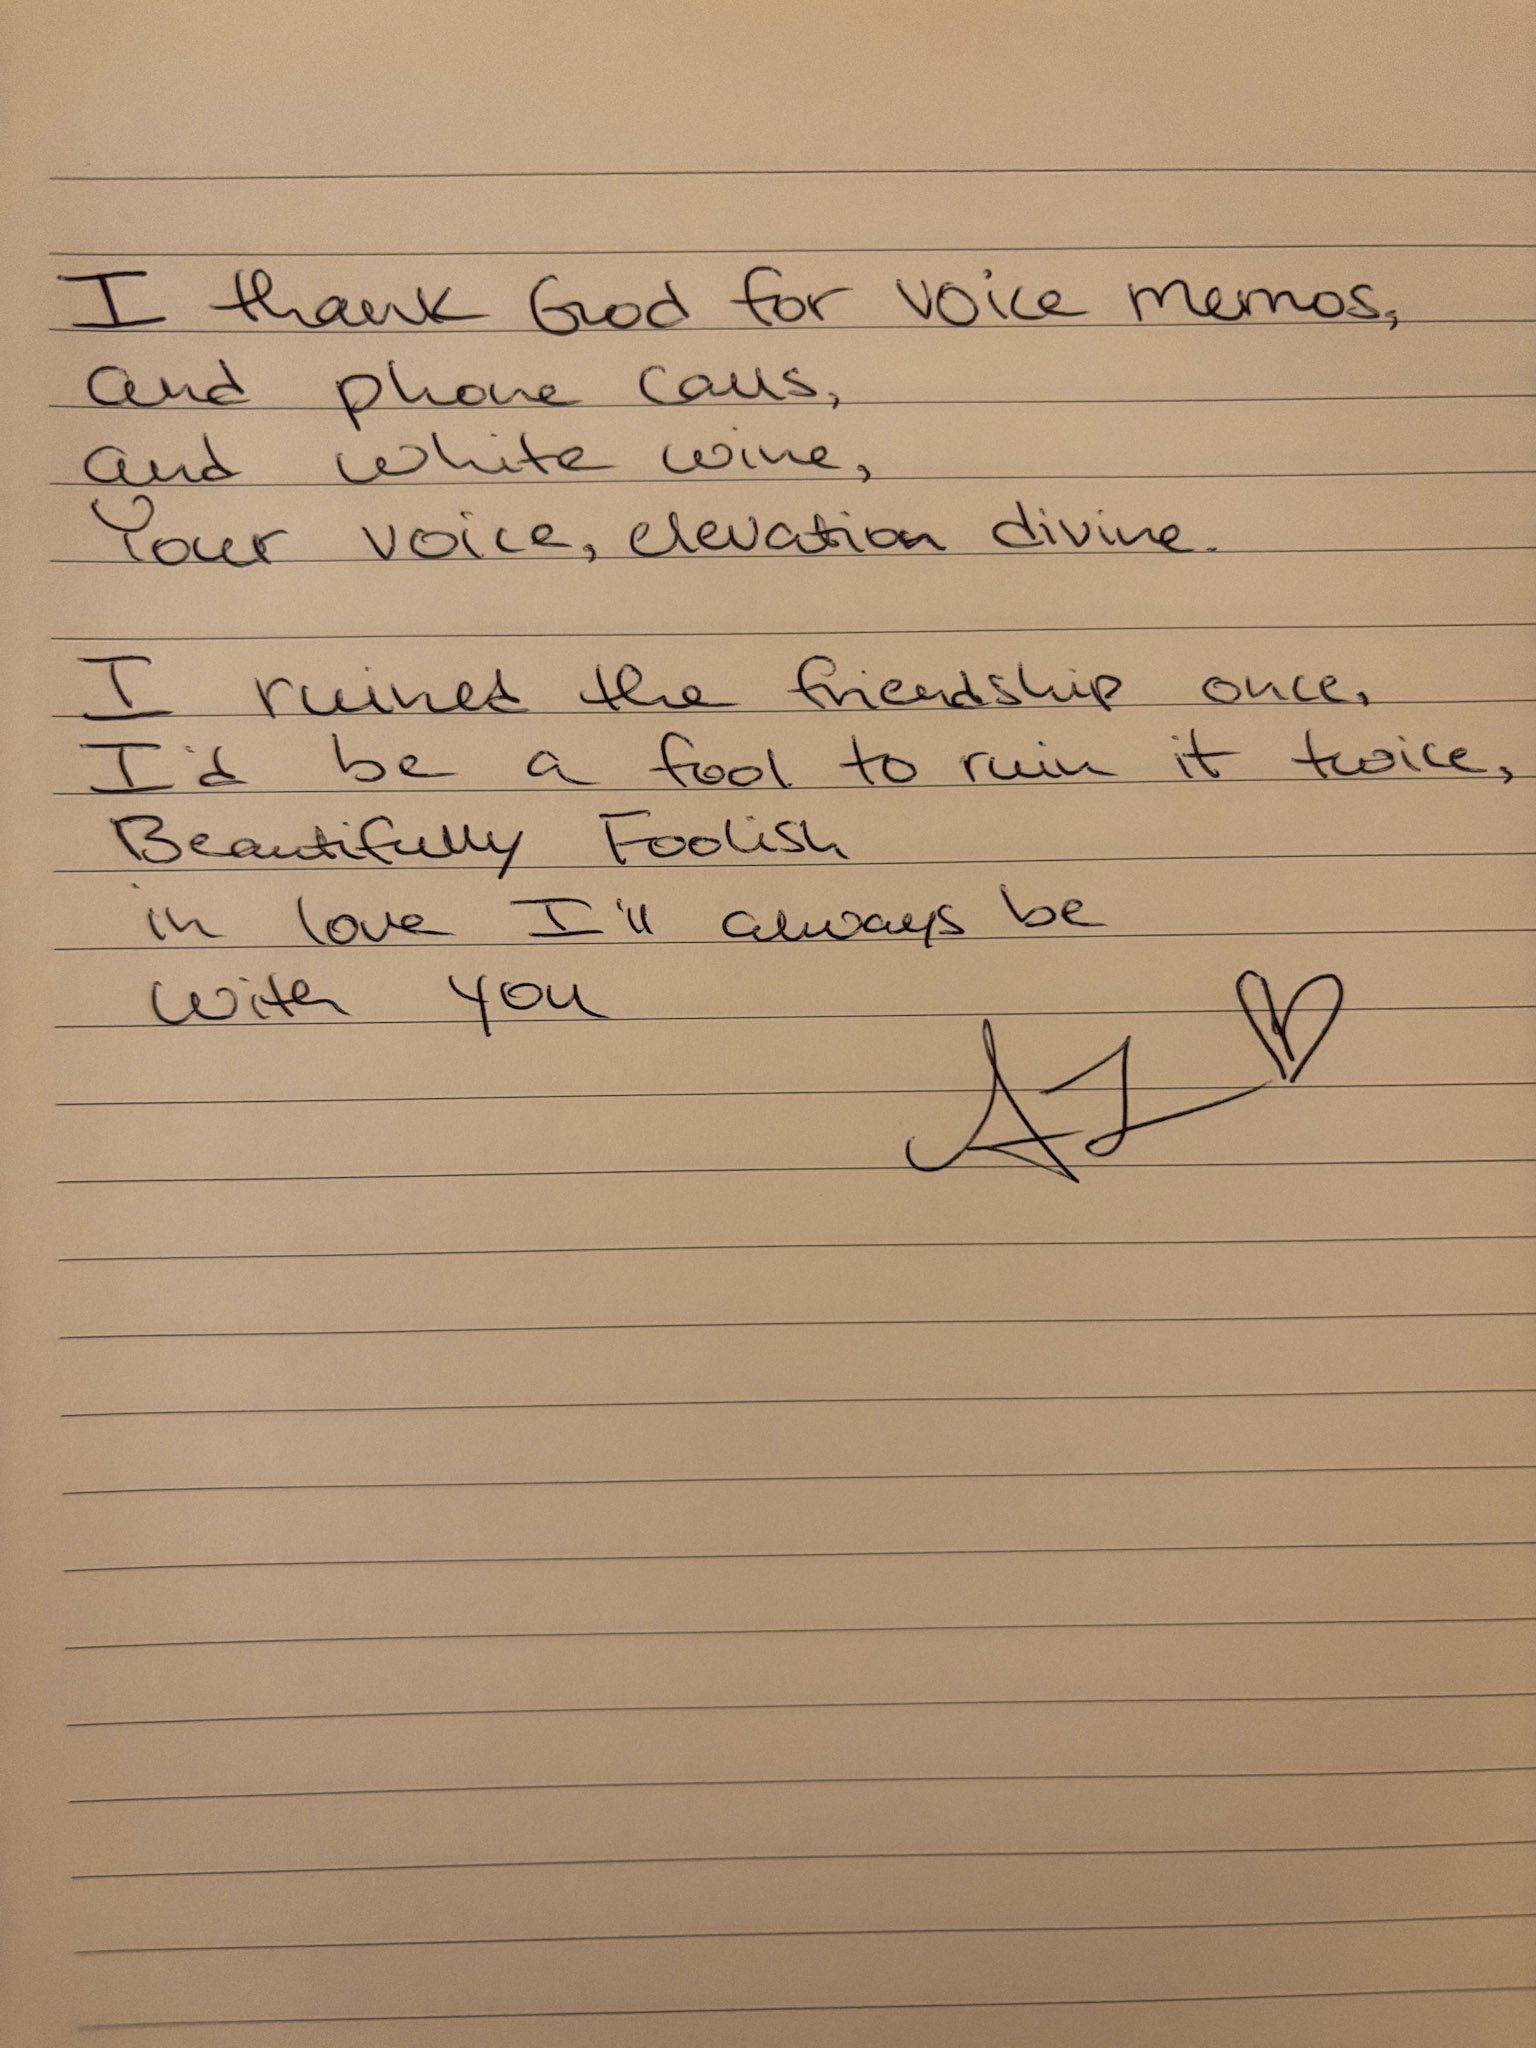 I thank God for voice memos,
and phone calls,
and white wine,
Your voice, elevation divine.
I ruined the friendship once,
I'd be a fool to ruin it twice,
Beautifully Foolish
in love I'll always be
with you